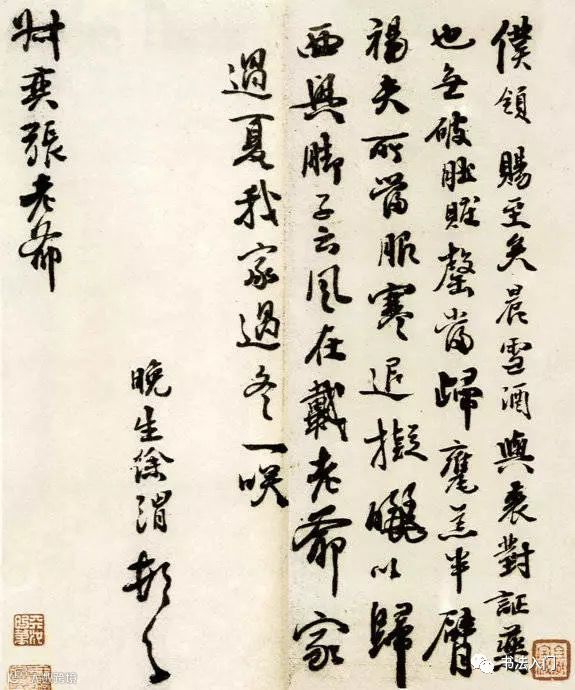 僕領賜至矣晨雪酒與裘對証藥
也無破肚賍罄當歸甕羔半臂
褐夫所常服寒退擬曬以歸
西興脚子云風在戴老爺家
過夏我家過冬一咲
晚生徐渭頓首
張老爺
书法入门